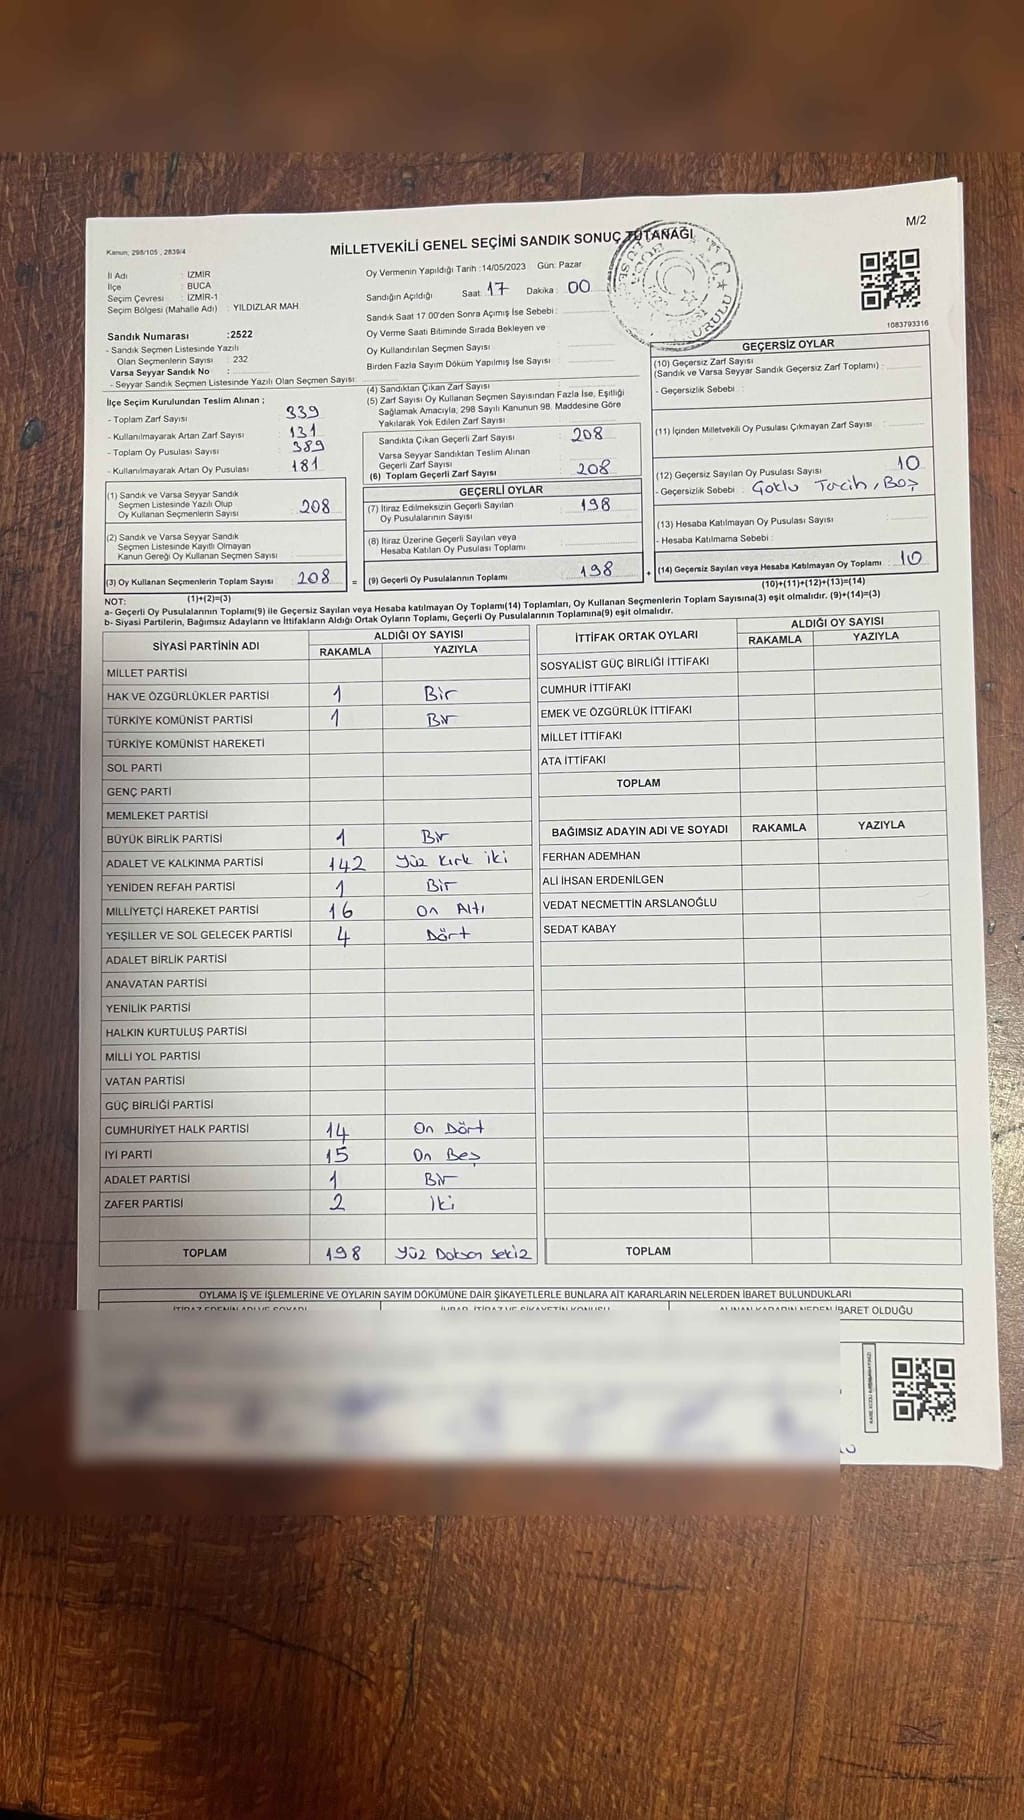 M/2
Kanun, 298/105 , 2839/4
MİLLETVEKİLİ GENEL SEÇİMİ SANDIK SONUÇ TUTANAĞI
İl Adı : İZMİR
İlçe : BUCA
Seçim Çevresi : İZMİR-1
Seçim Bölgesi (Mahalle Adı) : YILDIZLAR MAH.
Sandık Numarası :2522
- Sandık Seçmen Listesinde Yazılı
Olan Seçmenlerin Sayısı : 232
Varsa Seyyar Sandık No :
- Seyyar Sandık Seçmen Listesinde Yazılı Olan Seçmen Sayısı:
Oy Vermenin Yapıldığı Tarih :14/05/2023 Gün: Pazar
Sandığın Açıldığı Saat 17 Dakika : 00
Sandık Saat 17 00'den Sonra Açımış İse Sebebi :
Oy Verme Saati Bitiminde Sırada Bekleyen ve
Oy Kullandırılan Seçmen Sayısı
Birden Fazla Sayım Döküm Yapılmış İse Sayısı
1083793316
İlçe Seçim Kurulundan Teslim Alınan ;
- Toplam Zarf Sayısı 339
- Kullanılmayarak Artan Zarf Sayısı 131
- Toplam Oy Pusulası Sayısı 389
- Kullanılmayarak Artan Oy Pusulası 181
(1) Sandık ve Varsa Seyyar Sandık
Seçmen Listesinde Yazılı Olup
Oy Kullanan Seçmenlerin Sayısı 208
(2) Sandık ve Varsa Seyyar Sandık
Seçmen Listesinde Kayıtlı Olmayan
Kanun Gereği Oy Kullanan Seçmen Sayısı
(3) Oy Kullanan Seçmenlerin Toplam Sayısı 208
(1)+(2)=(3)
(4) Sandıktan Çıkan Zarf Sayısı
(5) Zarf Sayısı Oy Kullanan Seçmen Sayısından Fazla İse, Eşitliği
Sağlamak Amacıyla; 298 Sayılı Kanunun 98. Maddesine Göre
Yakılarak Yok Edilen Zarf Sayısı
Sandıkta Çıkan Geçerli Zarf Sayısı 208
Varsa Seyyar Sandıktan Teslim Alınan
Geçerli Zarf Sayısı
(6) Toplam Geçerli Zarf Sayısı 208
GEÇERLİ OYLAR
(7) İtiraz Edilmeksizin Geçerli Sayılan
Oy Pusulalarının Sayısı 198
(8) İtiraz Üzerine Geçerli Sayılan veya
Hesaba Katılan Oy Pusulası Toplamı
= (9) Geçerli Oy Pusulalarının Toplamı 198
GEÇERSİZ OYLAR
(10) Geçersiz Zarf Sayısı
(Sandık ve Varsa Seyyar Sandık Geçersiz Zarf Toplamı) :
- Geçersizlik Sebebi :
(11) İçinden Milletvekili Oy Pusulası Çıkmayan Zarf Sayısı
(12) Geçersiz Sayılan Oy Pusulası Sayısı 10
- Geçersizlik Sebebi : Tercih, Boş
(13) Hesaba Katılmayan Oy Pusulası Sayısı
- Hesaba Katılmama Sebebi :
+ (14) Geçersiz Sayılan veya Hesaba Katılmayan Oy Toplamı 10
(10)+(11)+(12)+(13)=(14)
NOT:
a- Geçerli Oy Pusulalarının Toplamı(9) ile Geçersiz Sayılan veya Hesaba katılmayan Oy Toplamı(14) Toplamları, Oy Kullanan Seçmenlerin Toplam Sayısına(3) eşit olmalıdır. (9)+(14)=(3)
b- Siyasi Partilerin, Bağımsız Adayların ve İttifakların Aldığı Ortak Oyların Toplamı, Geçerli Oy Pusulalarının Toplamına(9) eşit olmalıdır.
SİYASİ PARTİNİN ADI ALDIĞI OY SAYISI
RAKAMLA YAZIYLA
MİLLET PARTİSİ
HAK VE ÖZGÜRLÜKLER PARTİSİ 1 Bir
TÜRKİYE KOMÜNİST PARTİSİ 1 Bir
TÜRKİYE KOMÜNİST HAREKETİ
SOL PARTİ
GENÇ PARTİ
MEMLEKET PARTİSİ
BÜYÜK BİRLİK PARTİSİ 1 Bir
ADALET VE KALKINMA PARTİSİ 142 Yüz Kırk iki
YENİDEN REFAH PARTİSİ 1 Bir
MİLLİYETÇİ HAREKET PARTİSİ 16 On Altı
YEŞİLLER VE SOL GELECEK PARTİSİ 4 Dört
ADALET BİRLİK PARTİSİ
ANAVATAN PARTİSİ
YENİLİK PARTİSİ
HALKIN KURTULUŞ PARTİSİ
MİLLİ YOL PARTİSİ
VATAN PARTİSİ
GÜÇ BİRLİĞİ PARTİSİ
CUMHURİYET HALK PARTİSİ 14 On Dört
İYİ PARTİ 15 On Beş
ADALET PARTİSİ 1 Bir
ZAFER PARTİSİ 2 İki
TOPLAM 198 Yüz Doksan Sekiz
İTTİFAK ORTAK OYLARI ALDIĞI OY SAYISI
RAKAMLA YAZIYLA
SOSYALİST GÜÇ BİRLİĞİ İTTİFAKI
CUMHUR İTTİFAKI
EMEK VE ÖZGÜRLÜK İTTİFAKI
MİLLET İTTİFAKI
ATA İTTİFAKI
TOPLAM
BAĞIMSIZ ADAYIN ADI VE SOYADI RAKAMLA YAZIYLA
FERHAN ADEMHAN
ALİ İHSAN ERDENİLGEN
VEDAT NECMETTİN ARSLANOĞLU
SEDAT KABAY
TOPLAM
OYLAMA İŞ VE İŞLEMLERİNE VE OYLARIN SAYIM DÖKÜMÜNE DAİR ŞİKAYETLERLE BUNLARA AİT KARARLARIN NELERDEN İBARET BULUNDUKLARI
İTİRAZ EDENİN ADI VE SOYADI İHBAR, İTİRAZ VE ŞİKAYETİN KONUSU ALINAN KARARIN NEDEN İBARET OLDUĞU